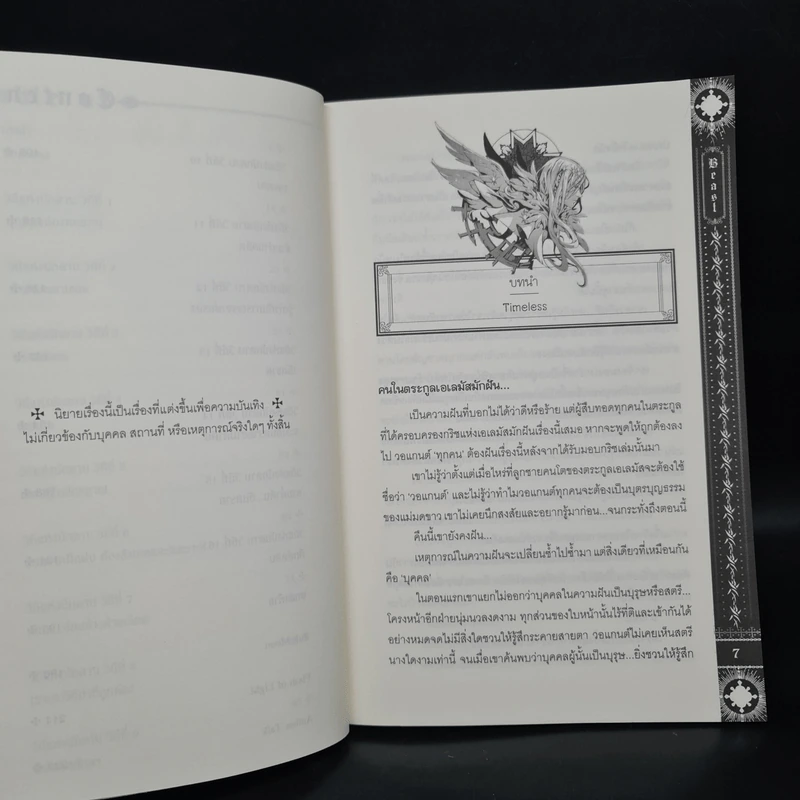 นิยายเรื่องนี้เป็นเรื่องที่แต่งขึ้นเพื่อความบันเทิง
ไม่เกี่ยวข้องกับบุคคล สถานที่ หรือเหตุการณ์จริงใดๆ ทั้งสิ้น
บทนำ
Timeless
คนในตระกูลเอเลมัสมักฝัน...
เป็นความฝันที่บอกไม่ได้ว่าดีหรือร้าย แต่ผู้สืบทอดทุกคนในตระกูล
ที่ได้ครอบครองกริชแห่งเอเลมัสมักฝันเรื่องนี้เสมอ หากจะพูดให้ถูกต้องลง
ไป วอแกนต์ 'ทุกคน' ต้องฝันเรื่องนี้หลังจากได้รับมอบกริชเล่มนั้นมา
เขาไม่รู้ว่าตั้งแต่เมื่อไหร่ที่ลูกชายคนโตของตระกูลเอเลมัสจะต้องใช้
ชื่อว่า 'วอแกนต์' และไม่รู้ว่าทำไมวอแกนต์ทุกคนจะต้องเป็นบุตรบุญธรรม
ของแม่มดขาว เขาไม่เคยนึกสงสัยและอยากรู้มาก่อน...จนกระทั่งถึงตอนนี้
คืนนี้เขายังคงฝัน...
เหตุการณ์ในความฝันจะเปลี่ยนซ้ำไปซ้ำมา แต่สิ่งเดียวที่เหมือนกัน
คือ 'บุคคล'
ในตอนแรกเขาแยกไม่ออกว่าบุคคลในความฝันเป็นบุรุษหรือสตรี...
โครงหน้าอีกฝ่ายนุ่มนวลงดงาม ทุกส่วนของใบหน้านั้นไร้ที่ติและเข้ากันได้
อย่างหมดจดไม่มีสิ่งใดชวนให้รู้สึกระคายสายตา วอแกนต์ไม่เคยเห็นสตรี
นางใดงามเท่านี้ จนเมื่อเขาค้นพบว่าบุคคลผู้นั้นเป็นบุรุษ...ยิ่งชวนให้รู้สึก
Beast
7